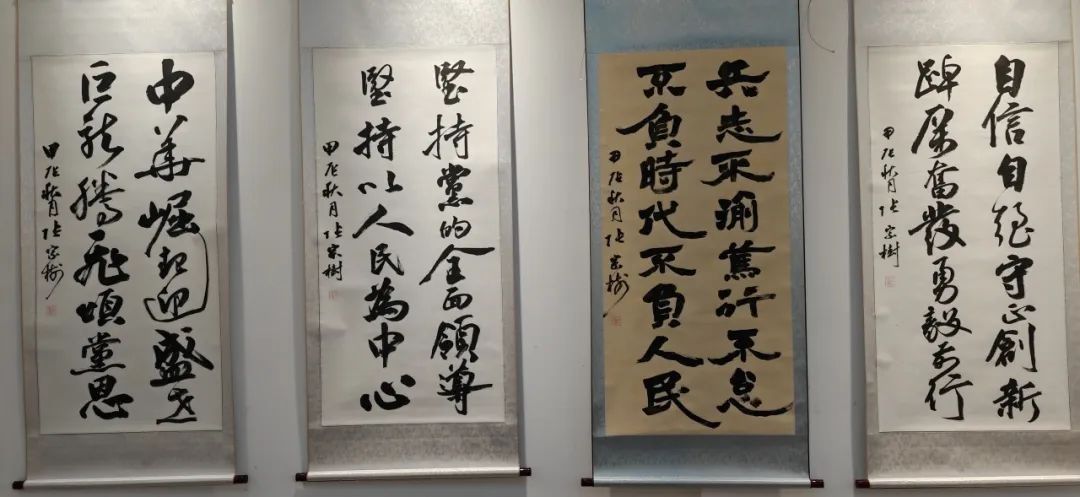 中華崛起迎盛世
巨龍騰飛頌黨恩
甲辰秋月張宗樹
堅持黨的全面領導
堅持以人民為中心
甲辰秋月張宗樹
矢志不渝篤行不怠
不負時代不負人民
甲辰秋月張宗樹
自信自強守正創新
踔厲奮發勇毅前行
甲辰秋月張宗樹